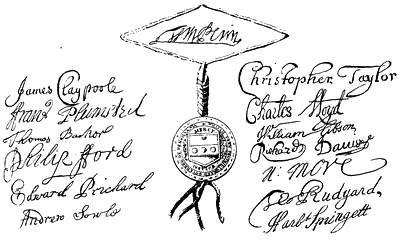 Wm Penn
James Claypoole
Fran: Plumsted
Thomas Barker
Philip fford
Edward Prichard
Andrew Sowle
Christopher Taylor
Charles Lloyd
William Gibson
Richard Davies
N: More
Geo Rudyard,
Harbt Springett
MERCY